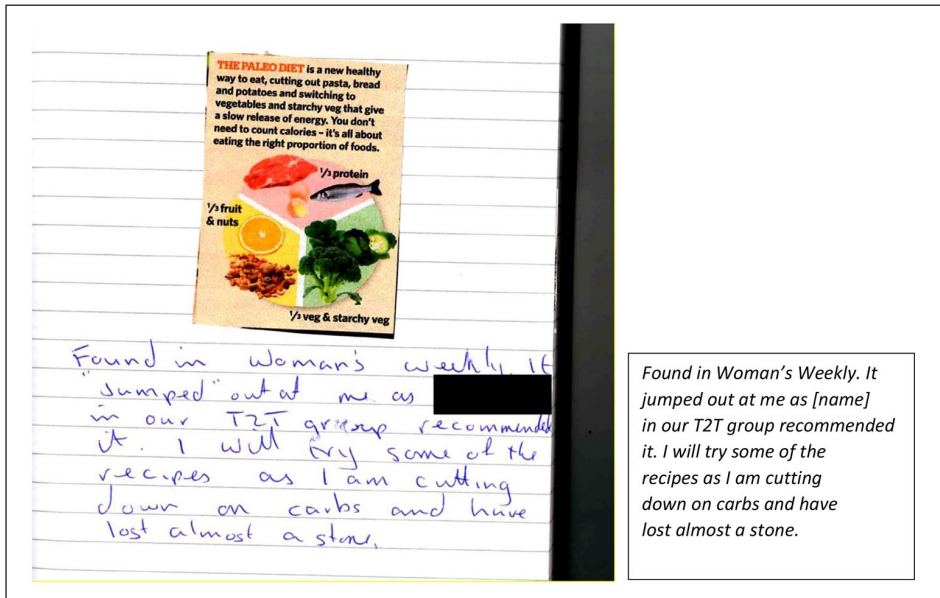 THE PALEO DIET is a new healthy
way to eat, cutting out pasta, bread
and potatoes and switching to
vegetables and starchy veg that give
a slow release of energy. You don't
need to count calories – it's all about
eating the right proportion of foods.
1/3 protein
1/3 fruit
& nuts
1/3 veg & starchy veg
Found in Woman's weekly. It
"Jumped" out at me as
in our T2T group recommended
it. I will try some of the
recipes as I am cutting
down on carbs and have
lost almost a stone.
Found in Woman's Weekly. It
jumped out at me as [name]
in our T2T group recommended
it. I will try some of the
recipes as I am cutting
down on carbs and have
lost almost a stone.